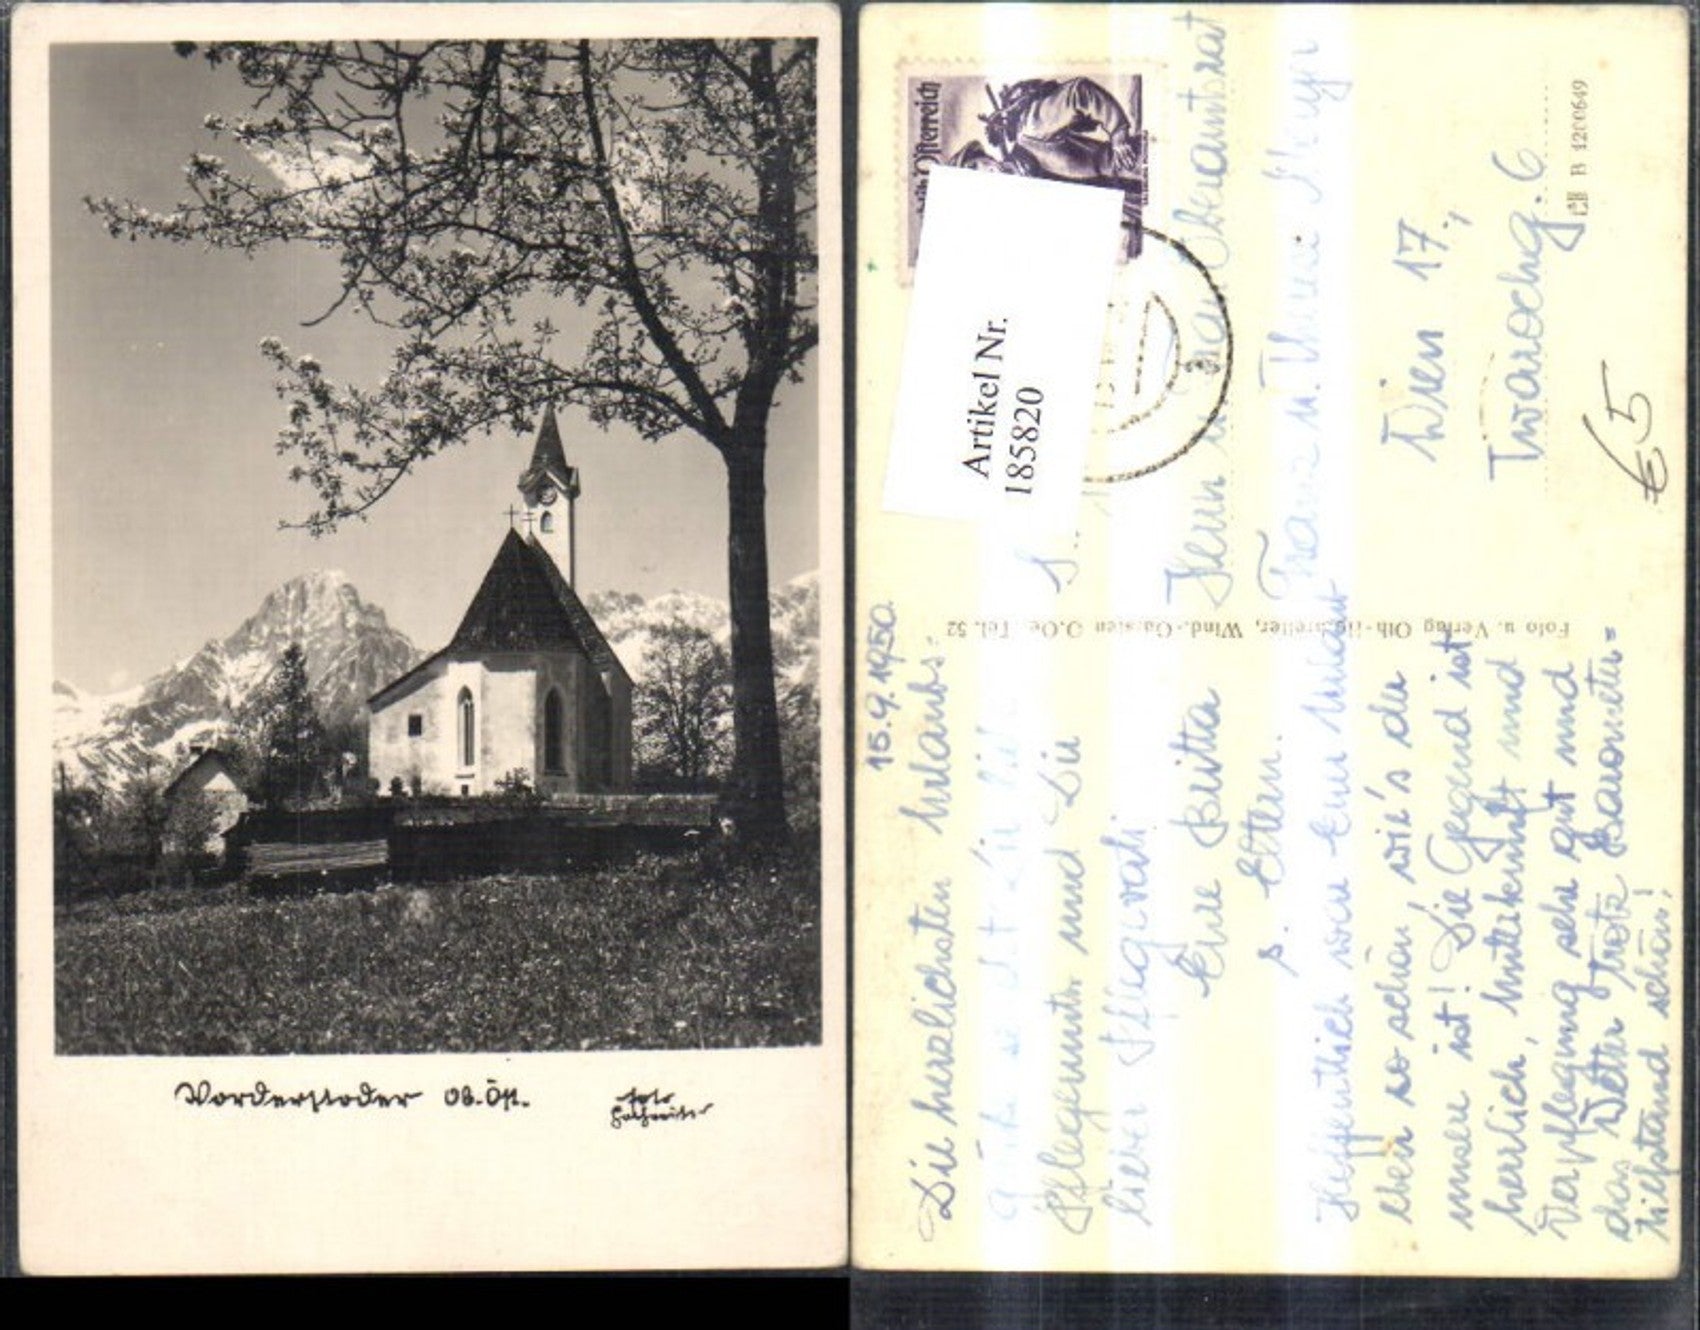 Vorderstoder Ob. Öst.
Foto
Österreich
Artikel Nr.
185820
15.9.1950.
Die herzlichsten Urlaubs-
Pflegemutti und Dir
lieber Pflegevati
Eure Britta
s. Eltern.
Hoffentlich war Euer Urlaub
eben so schön, wie's der
unsere ist! Die Gegend ist
herrlich, Unterkunft und
Verpflegung sehr gut und
das Wetter trotz Barometer=
tiefstand schön!
Foto u. Verlag
Wind.-Garsten O.Oe. Tel. 52
Herrn u. Frau Oberamtsrat
Franz u.
Wien 17.,
Twarochg. 6
B 420649
€ 5